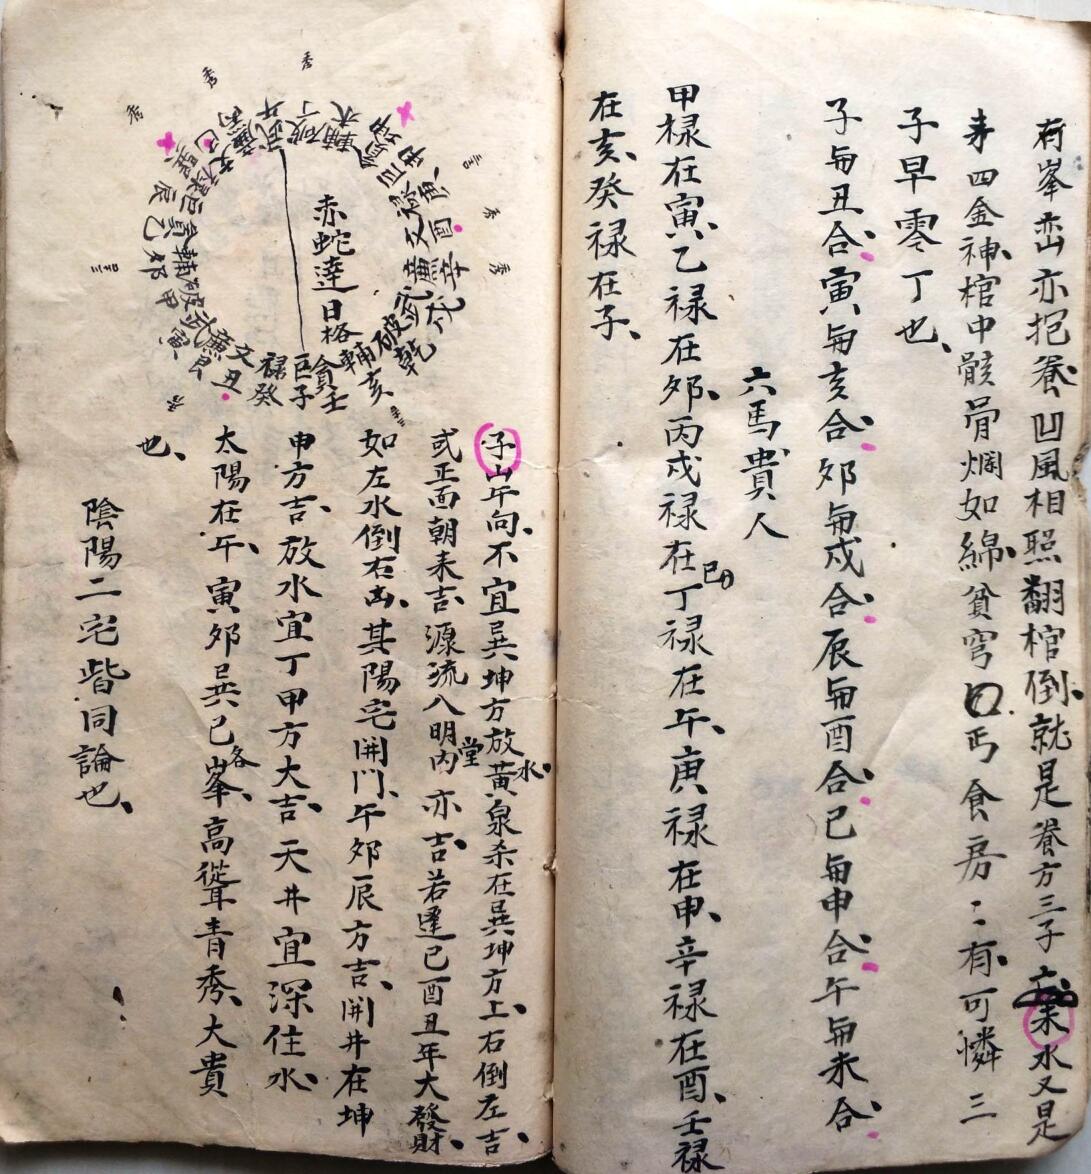 有峯峦亦抱養凹風相照翻棺倒、就是養方三子來水又是
才四金神、棺中骸骨爛如綿、貧穹口丐食房：有、可憐三
子早零丁也、
子與丑合、寅與亥合、卯與戍合、辰與酉合、巳與申合、午與未合、
六馬貴人
甲禄在寅、乙禄在卯、丙戍禄在巳丁禄在午、庚禄在申、辛禄在酉、壬禄
在亥、癸禄在子、
赤蛇遶日格
子山午向、不宜巽坤方放水、黃泉杀在巽坤方上、右倒左吉、
或正面朝来吉、源流八明堂内亦吉、若逢巳酉丑年大發財、
如左水倒右凶、其陽宅開門、午卯辰方吉、開井在坤
申方吉、放水宜丁甲方大吉、天井宜深住水、
太陽在午、寅卯巽巳各峯、高聳青秀、大貴
也、
陰陽二宅皆同論也、